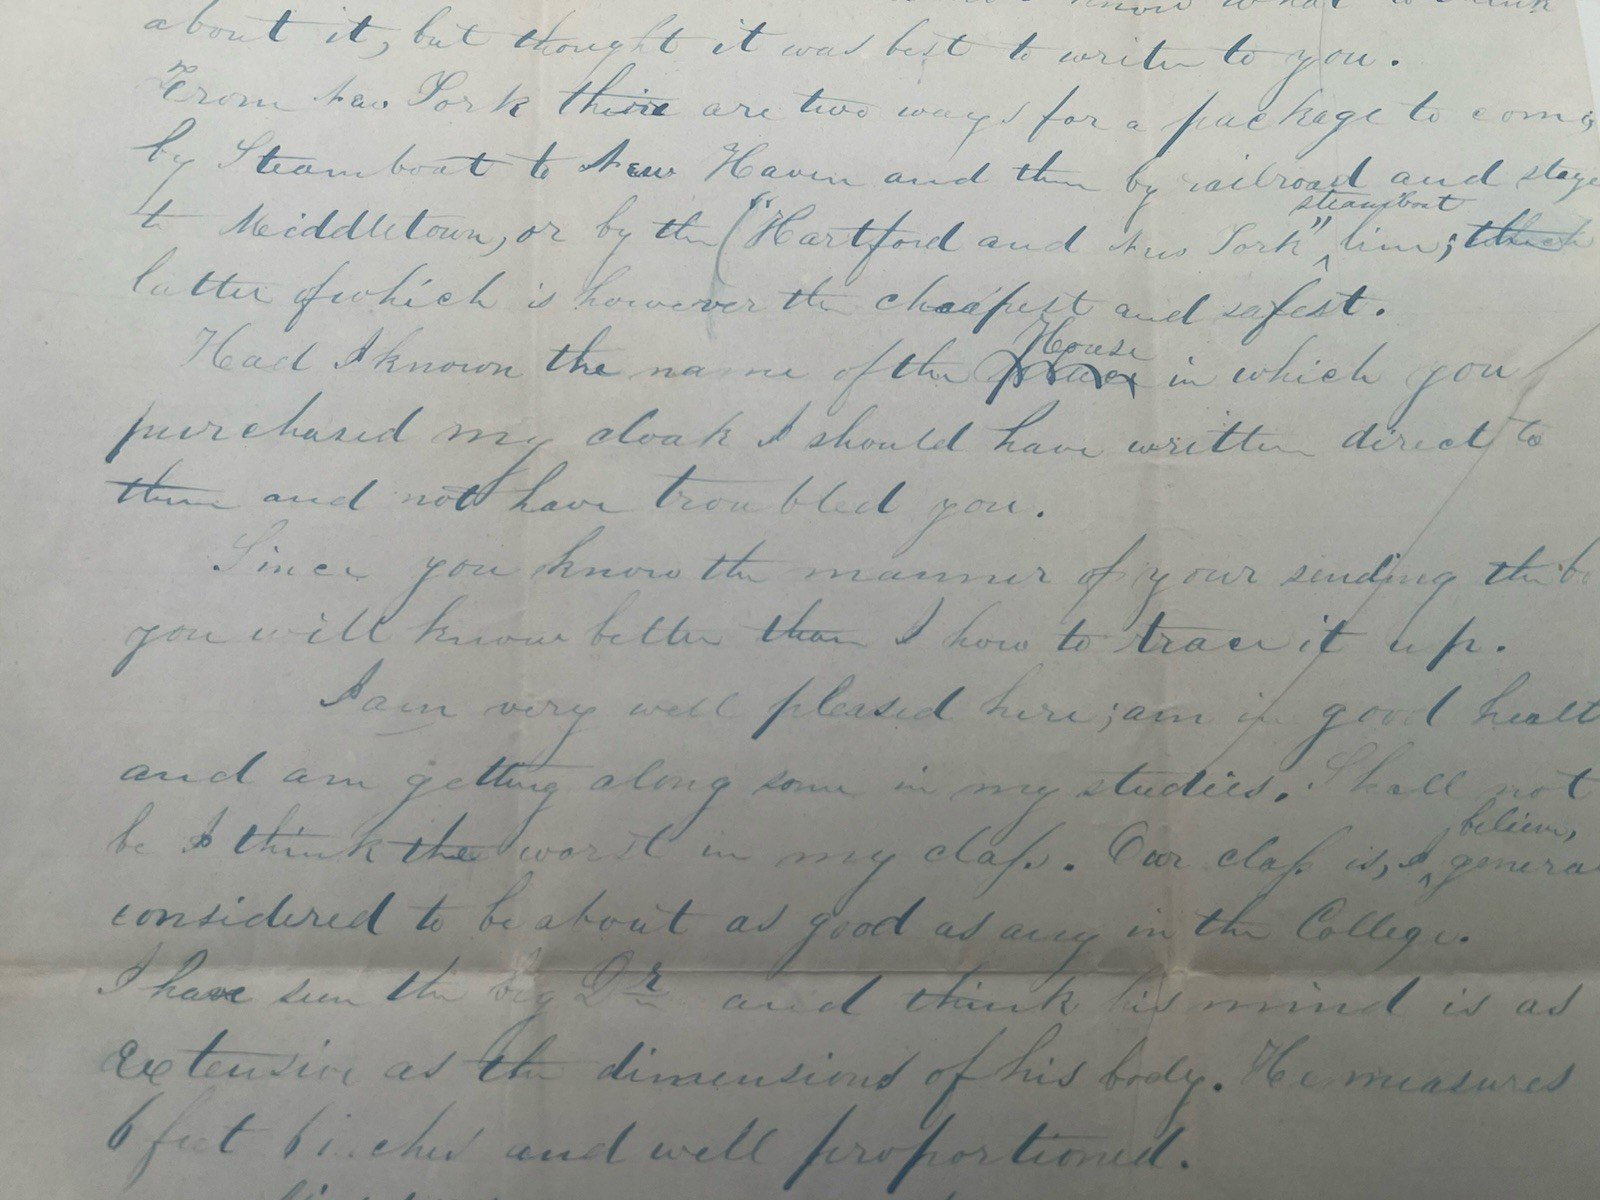 know what to think
about it, but thought it was best to write to you.
From New York there are two ways for a package to come,
by Steamboat to New Haven and then by railroad and stage
to Middletown, or by the ("Hartford and New York" steamboat line; which
latter of which is however the cheapest and safest.
Had I known the name of the House in which you
purchased my cloak I should have written direct to
them and not have troubled you.
Since you know the manner of your sending the bo
you will know better than I how to trace it up.
I am very well pleased here; am in good healt
and am getting along some in my studies. Shall not
be I think the worst in my class. Our class is, I believe, genera
considered to be about as good as any in the College.
I have seen the big Dr and think his mind is as
extensive as the dimensions of his body. He measures
6 feet 6 inches and well proportioned.